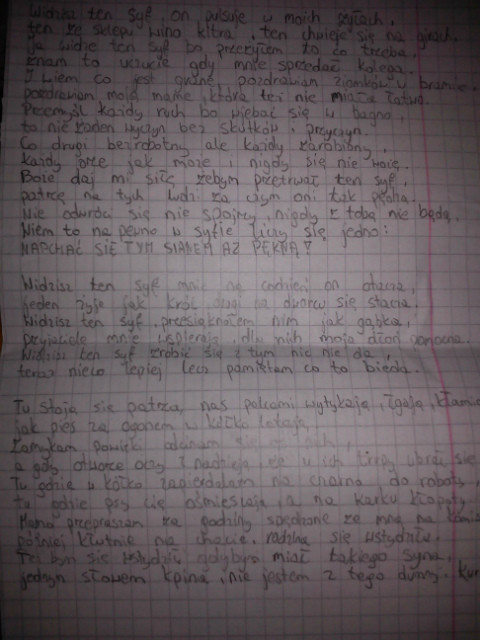 Widzisz ten syf, on pulsuje w moich żyłach,
ten ze sklepu wino kitra, ten chwieje się na girach.
Ja widzę ten syf bo przeżyłem to co trzeba,
znam to uczucie gdy mnie sprzedać kolega.
I wiem co jest grane, pozdrawiam ziomków w bramie,
pozdrawiam moją mamę, która też nie miała łatwo.
Przemyśl każdy ruch bo wjebać się w bagno,
to nie żaden wyczyn bez skutków i przyczyn.
Co drugi bezrobotny ale każdy zarobiony,
każdy orze jak może i nigdy się nie
Boże daj mi siłę żebym przetrwał ten syf,
patrzę na tych ludzi za czym oni tak pędzą.
Nie odwróci się nie spojrzy, nigdy z tobą nie będą.
Wiem to na pewno w syfie liczy się jedno:
NAPCHAĆ SIĘ TYM SIANEM AŻ PĘKNĄ?
Widzisz ten syf mnie na codzień on otacza,
jeden żyje jak król drugi na dworcu się stacza.
Widzisz ten syf, przesiąknołem nim jak gąbka,
przyjaciele mnie wspierają, dla nich moja dłoń pomocna.
Widzisz ten syf zrobić się z tym nic nie da,
teraz nieco lepiej lecz pamiętam co to bieda.
Tu stoją się patrzą, nas palcami wytykają, łgają, kłamią
jak pies za ogonem w kółko latają,
Zamykam powieki odcinam się
a gdy otworze oczy z nadzieją, że w ich
Tu gdzie w kółko zapierdalam na chatę, do roboty,
tu gdzie psy cię ośmieszają, a na karku kłopoty.
Mamo przepraszam za godziny spędzone ze mną na
później kłutnie na chacie, rodzina się wstydziła.
Też bym się wstydził gdybym miał takiego syna,
jednym słowem kpina, nie jestem z tego dumny.